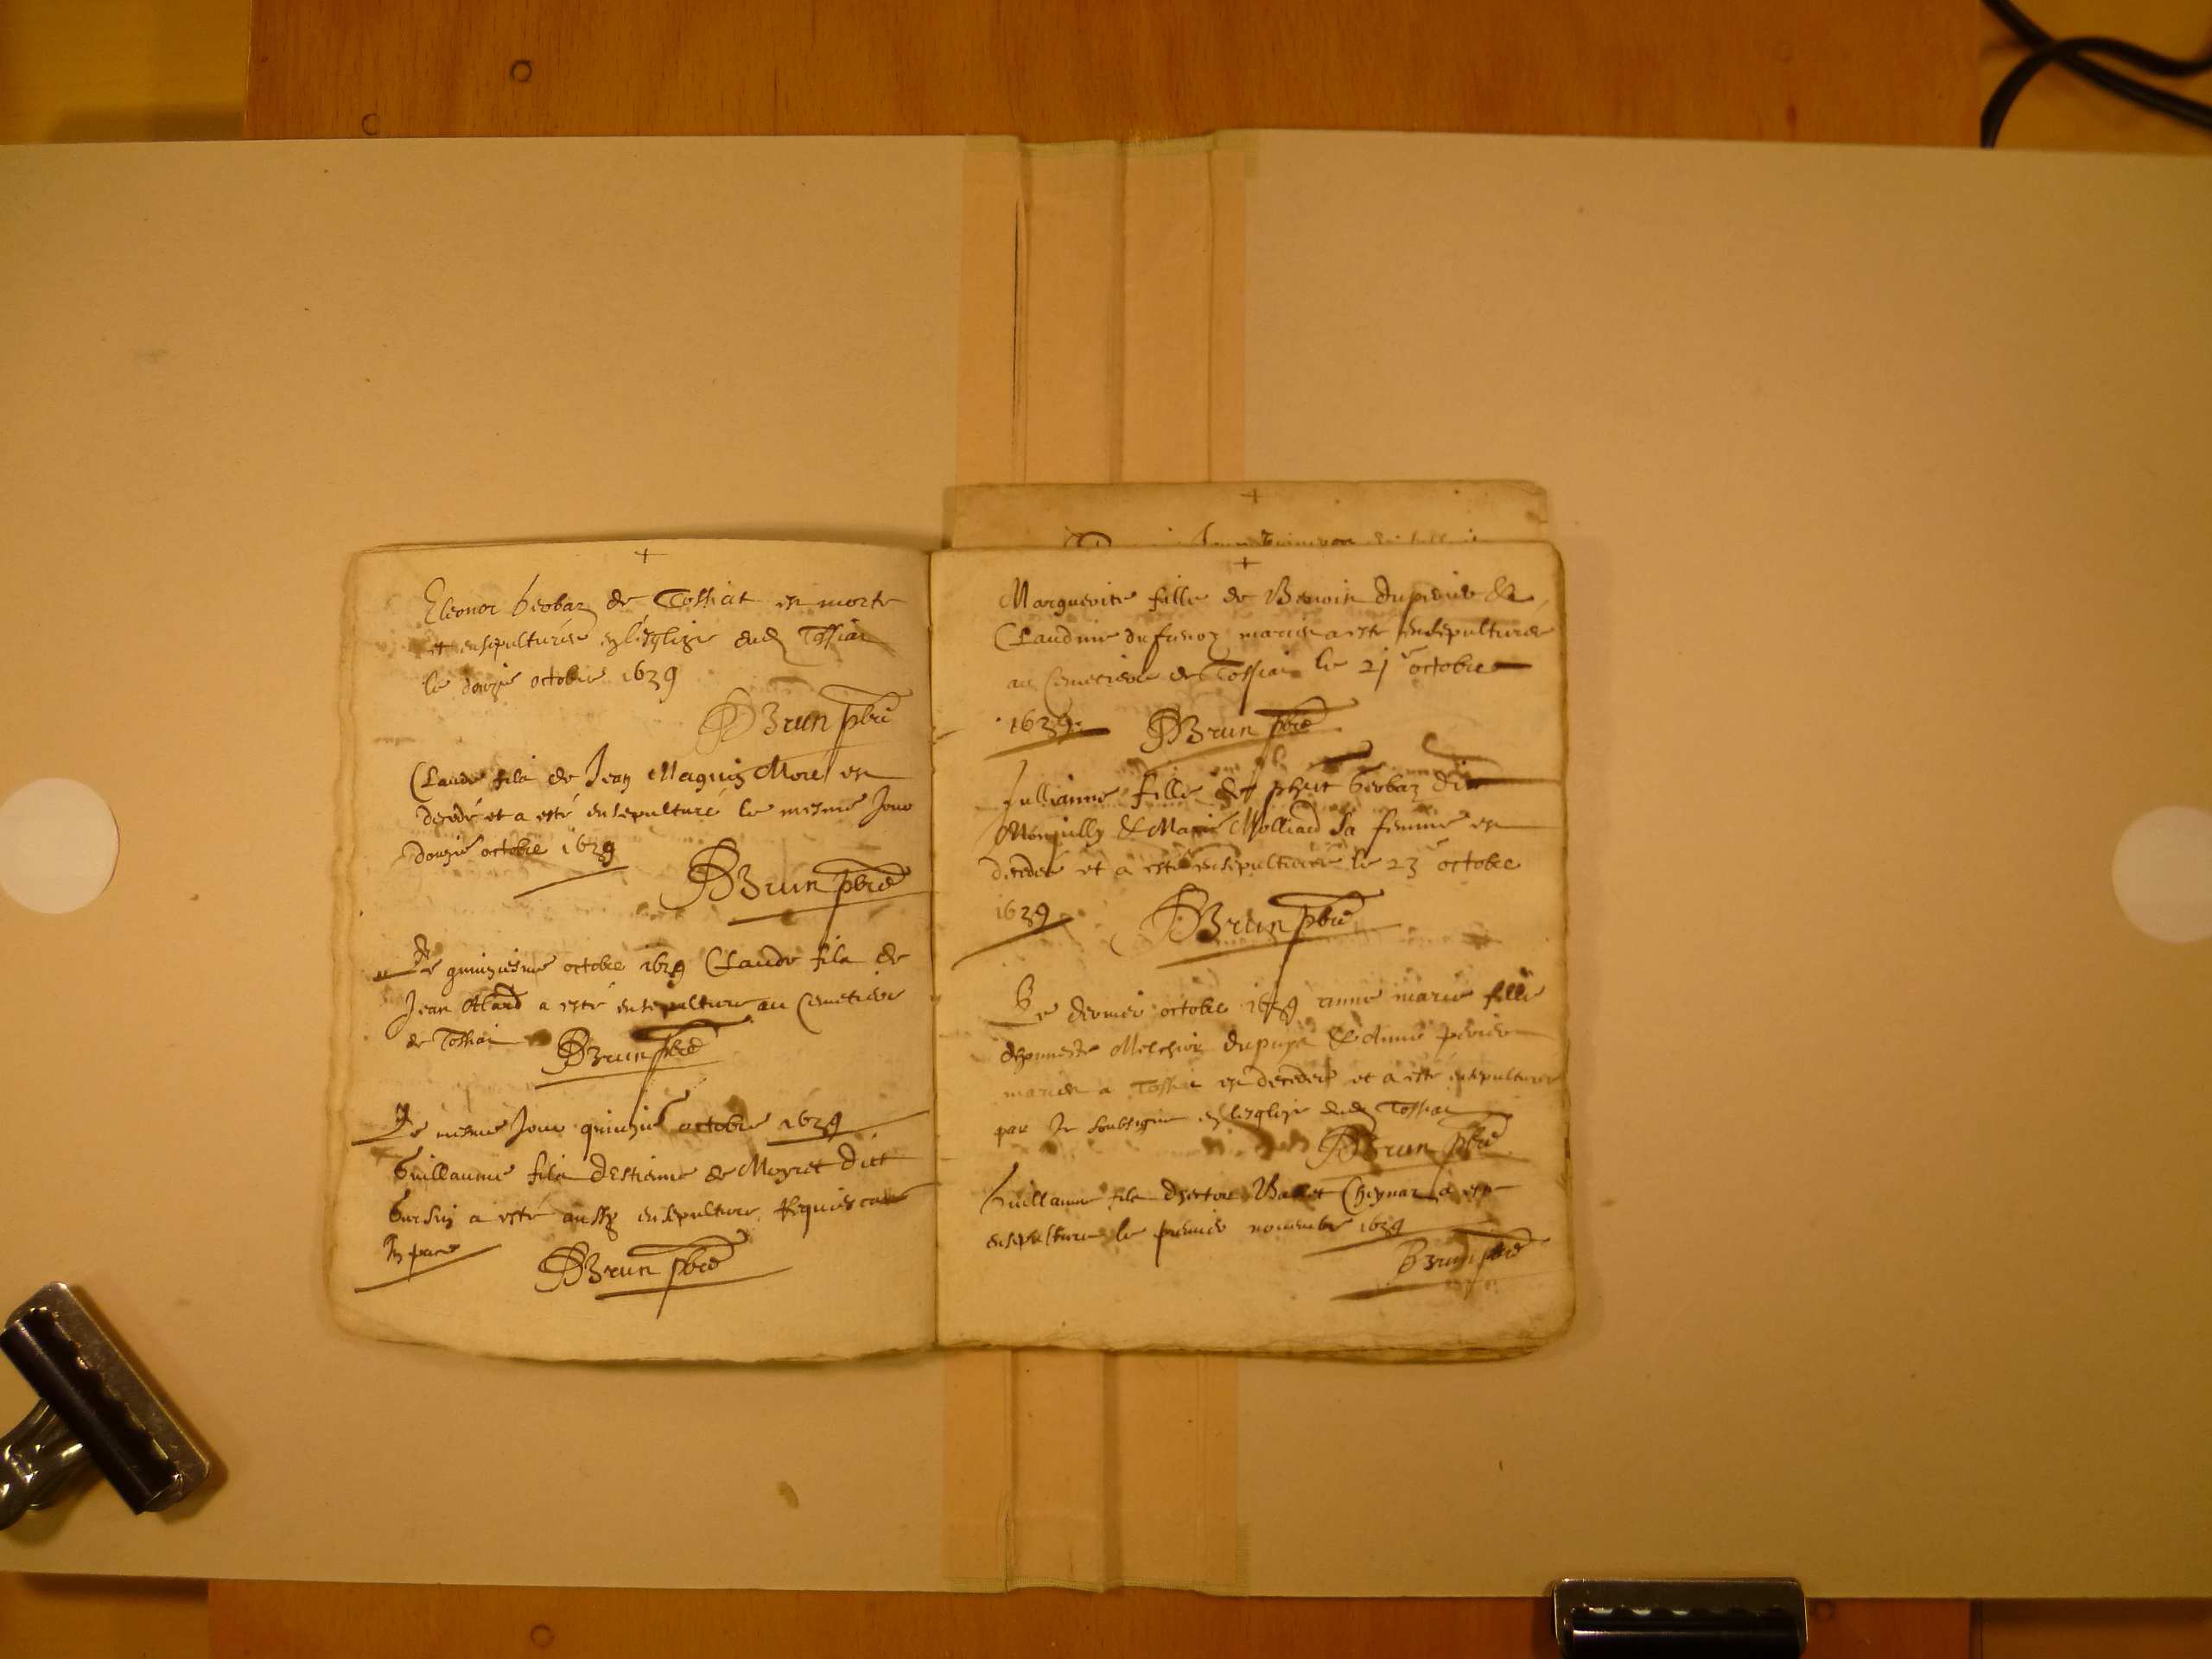 +
Eleonor beobaz de Tossiat est morte
et ensepulturée en l'esglize dud Tossiat
le douzie octobre 1639
Brun pbre
Claude fils de Jean More est
decedé et a esté ensepulturé le mesme Jour
douzie octobre 1639
Brun pbre
Le quinziesme octobre 1639 Claude fils de
Jean a esté ensepulture au Cemetiere
de Tossiat
Brun pbre
Le mesme Jour quinzie octobre 1639
Guillaume fils destienne de Meyret dict
a esté aussy ensepulture Requiescat
In pace
Brun pbre
+
Marguerite fille de Benoist &
Claudine mariés a esté ensepulturée
au Cemetiere de Tossiat le 21 octobre
1639. Brun pbre
Jullianne fille de beobaz dit
& Marie Molliard sa femme est
decedée et a esté ensepulturée le 23 octobre
1639 Brun pbre
Le dernier octobre 1639 anne marie fille
dhonneste Melchior dupuys & Anne perier
mariés a Tossiat est decedée et a esté ensepulturée
par Je soubsigne en lesglize dud Tossiat
Brun pbre
Guillaume fils a esté
ensepulture le premier novembre 1639
Brun pbre